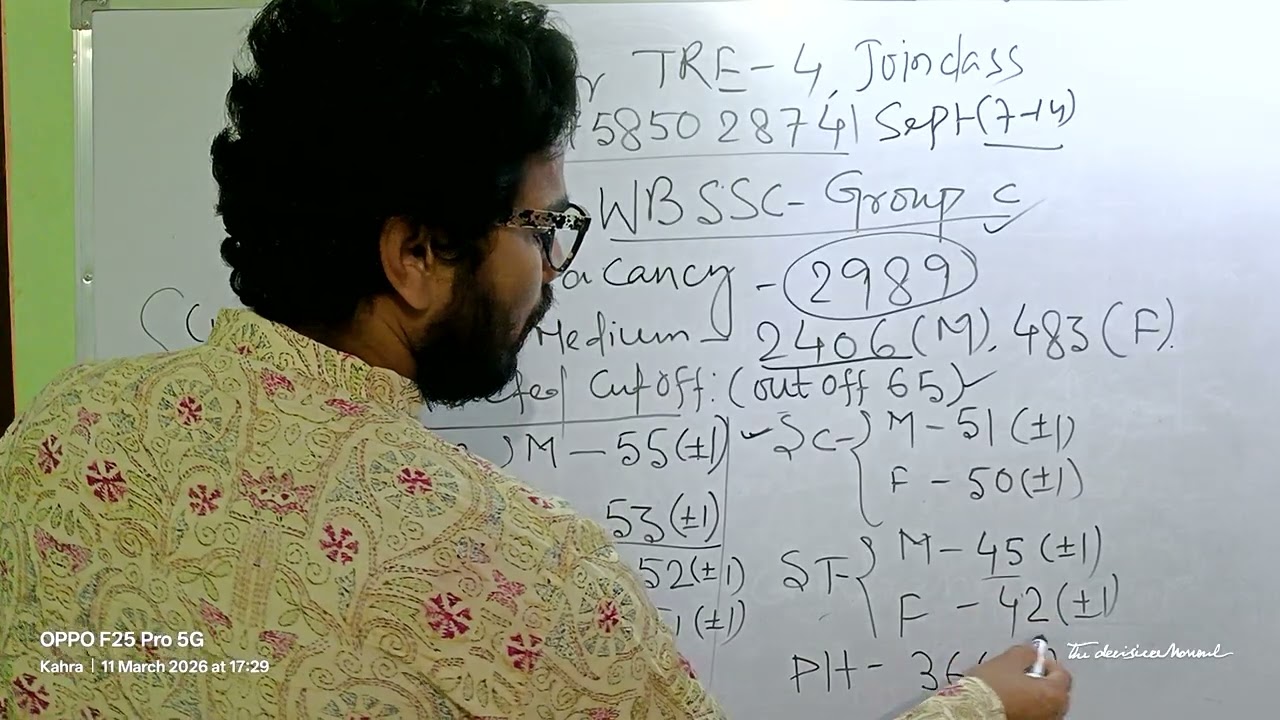 TRE-4, Join class
58502 8741 Sept (7-14)
WBSSC- Group C
acancy - 2989
Medium - 2406 (M), 483 (F).
Cutoff: (out off 65)
M - 55 (±1)
53 (±1)
52 (±1)
1 (±1)
SC- M - 51 (±1)
F - 50 (±1)
ST- M - 45 (±1)
F - 42 (±1)
PH - 36
OPPO F25 Pro 5G
Kahra | 11 March 2026 at 17:29